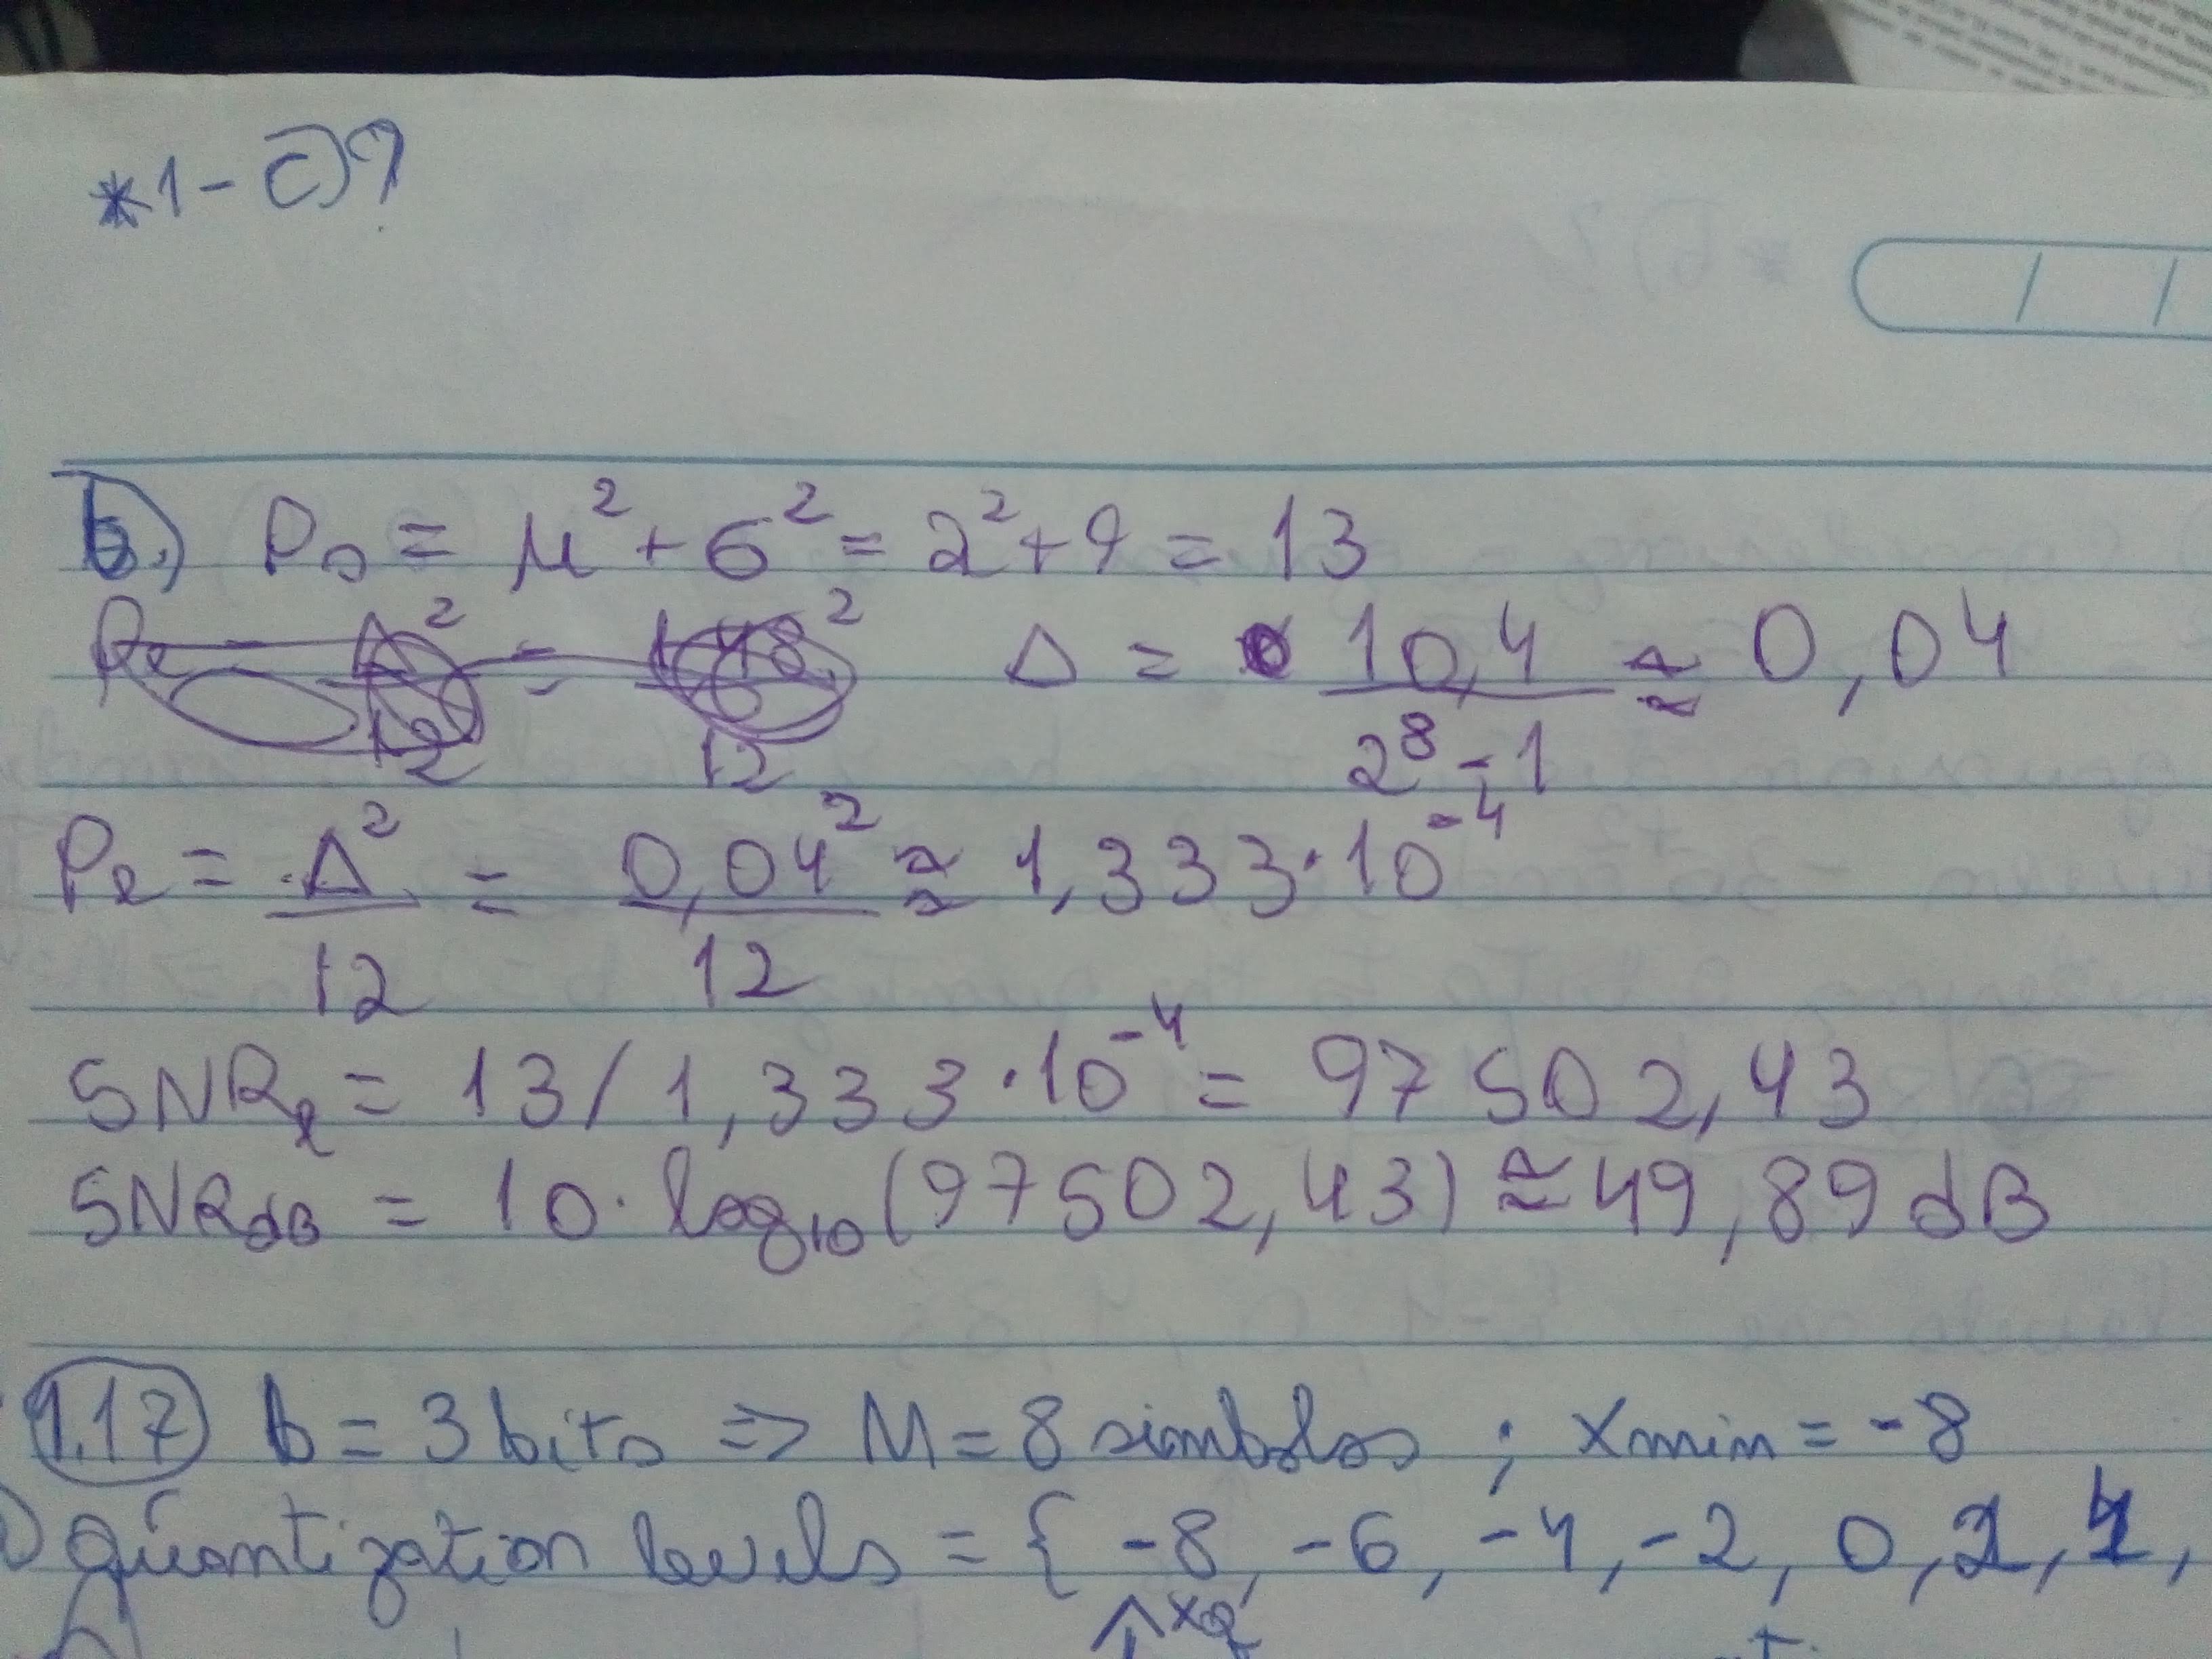 *1-c)?
b.) Ps = μ² + σ² = 2² + 9 = 13
Δ = 10,4 / 2⁸ - 1 ≅ 0,04
Pe = Δ² / 12 = 0,04² / 12 ≅ 1,333·10⁻⁴
SNRe = 13 / 1,333·10⁻⁴ = 97502,43
SNRdB = 10·log₁₀(97502,43) ≅ 49,89 dB
1.17 b = 3 bits => M = 8 simbolos ; xmin = -8
quantization levels = { -8, -6, -4, -2, 0, 2, 4,
↑xq